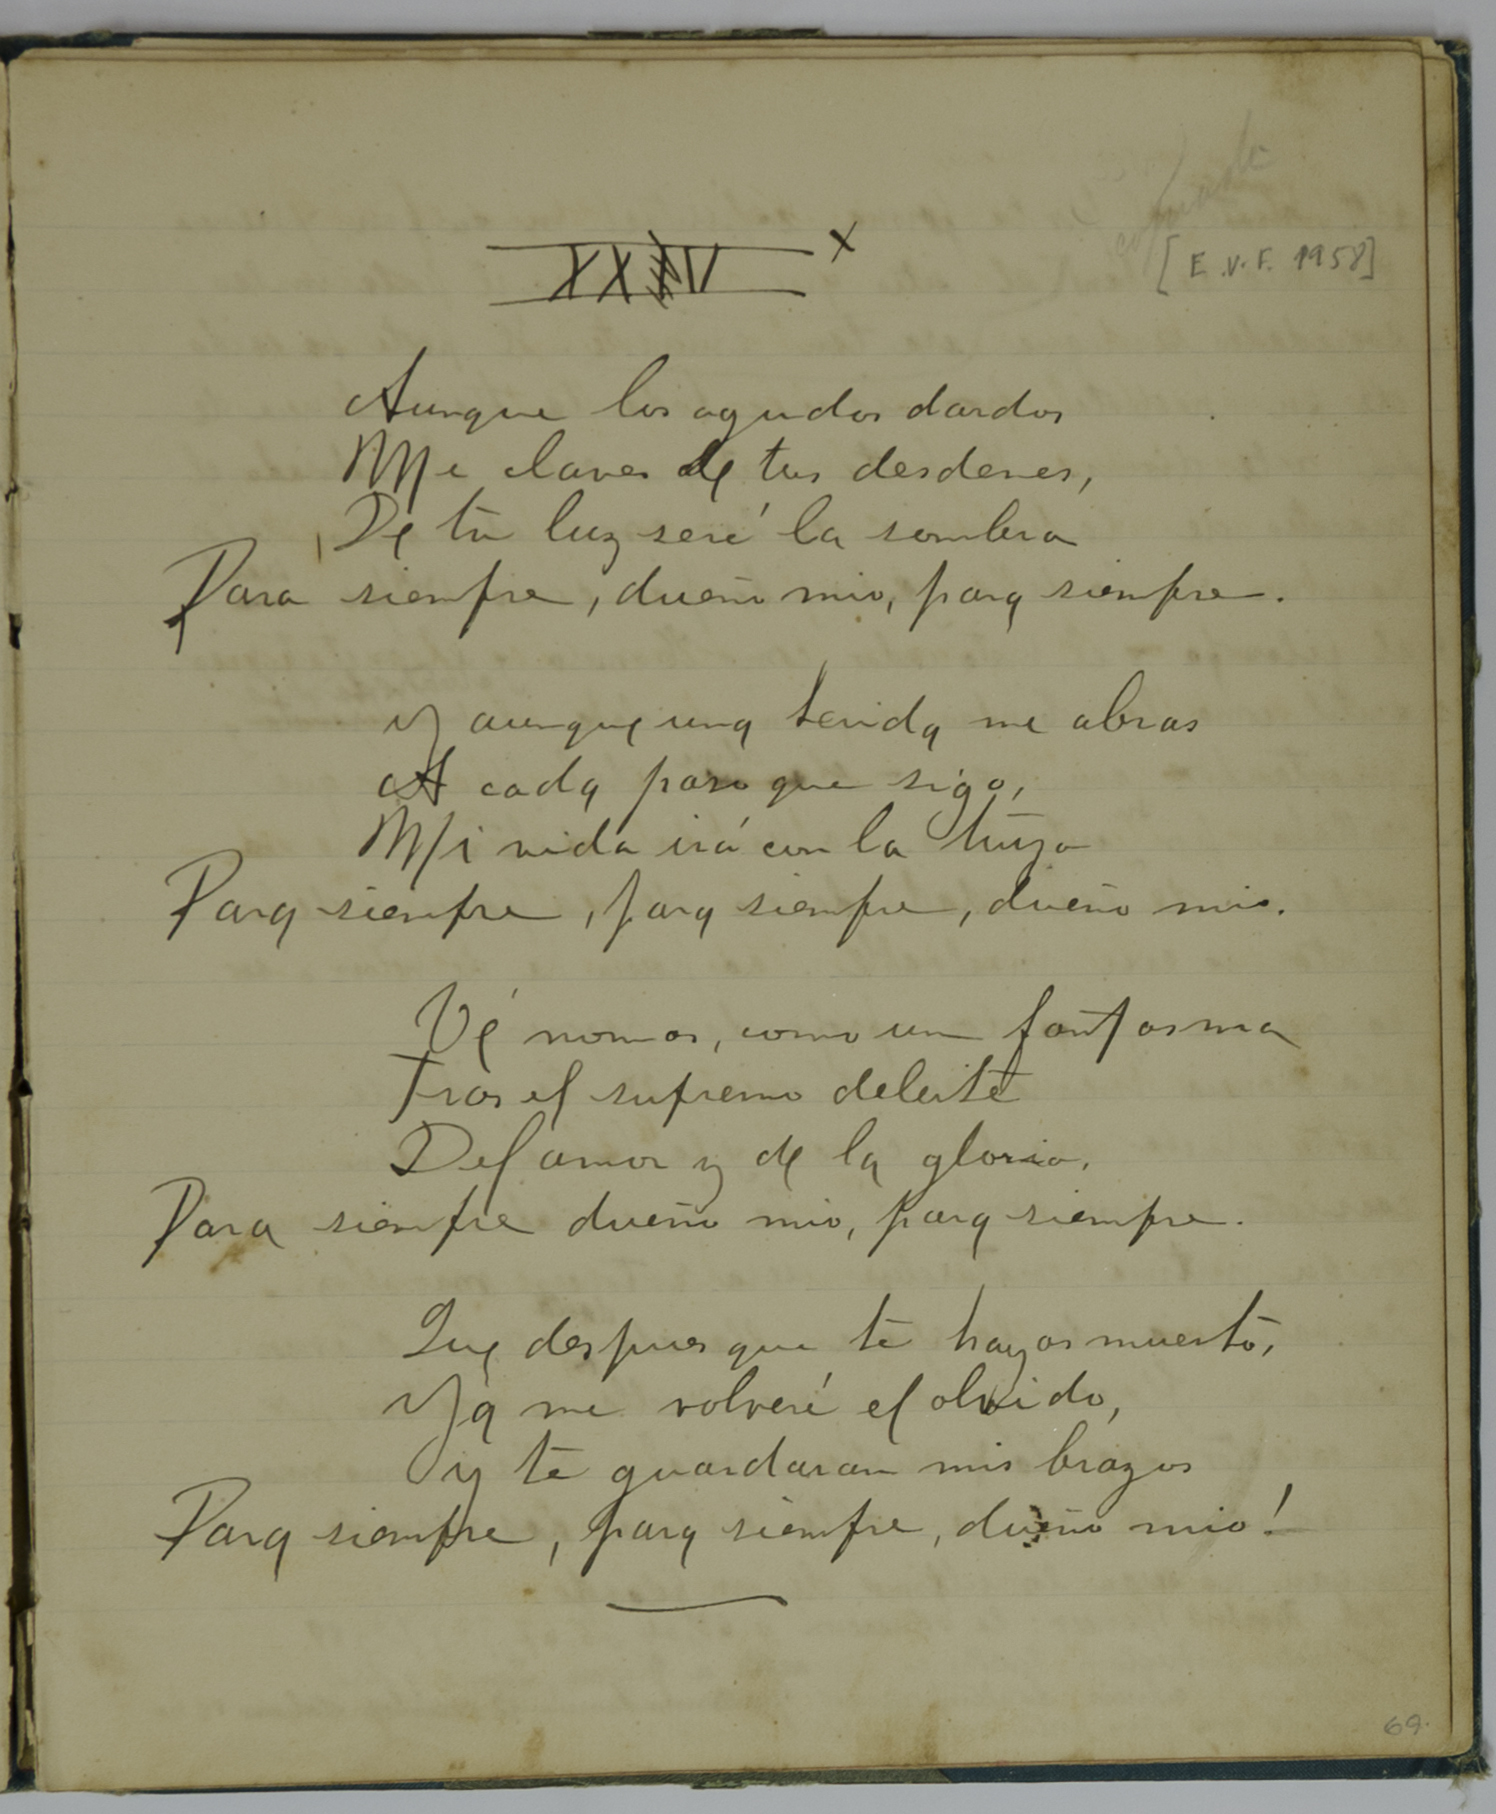 XXIV x
[E.V.F. 1958]
Aunque los agudos dardos
Me claves de tus desdenes,
De tu luz seré la sombra
Para siempre, dueño mio, para siempre.
Y aunque una herida me abras
A cada paso que sigo,
Mi vida irá con la tuya
Para siempre, para siempre, dueño mio.
Vé nomas, como un fantasma
Tras el supremo deleite
Del amor y de la gloria,
Para siempre dueño mio, para siempre.
Que despues que te hayas muerto,
Ya me volveré el olvido,
y te guardaran mis brazos
Para siempre, para siempre, dueño mio!
69.